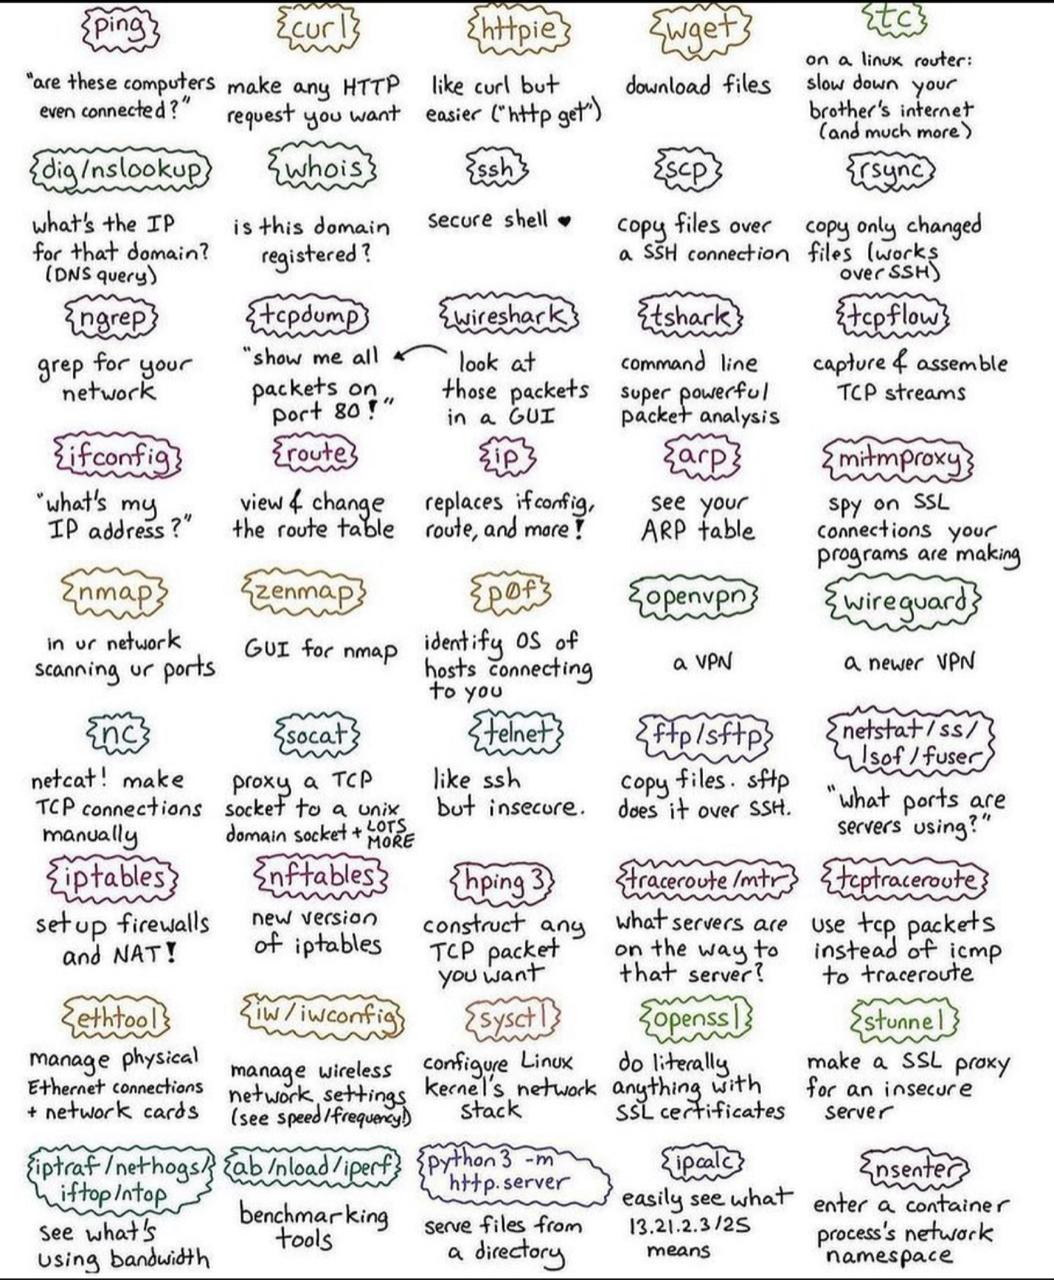 ping
"are these computers
even connected?"
curl
make any HTTP
request you want
httpie
like curl but
easier ("http get")
wget
download files
tc
on a linux router:
slow down your
brother's internet
(and much more)
dig/nslookup
what's the IP
for that domain?
(DNS query)
whois
is this domain
registered?
ssh
secure shell ♥
scp
copy files over
a SSH connection
rsync
copy only changed
files (works
over SSH)
ngrep
grep for your
network
tcpdump
"show me all
packets on
port 80!"
wireshark
look at
those packets
in a GUI
tshark
command line
super powerful
packet analysis
tcpflow
capture & assemble
TCP streams
ifconfig
"what's my
IP address?"
route
view & change
the route table
ip
replaces ifconfig,
route, and more!
arp
see your
ARP table
mitmproxy
spy on SSL
connections your
programs are making
nmap
in ur network
scanning ur ports
zenmap
GUI for nmap
p0f
identify OS of
hosts connecting
to you
openvpn
a VPN
wireguard
a newer VPN
nc
netcat! make
TCP connections
manually
socat
proxy a TCP
socket to a unix
domain socket + LOTS
MORE
telnet
like ssh
but insecure.
ftp/sftp
copy files. sftp
does it over SSH.
netstat/ss/
lsof/fuser
"what ports are
servers using?"
iptables
set up firewalls
and NAT!
nftables
new version
of iptables
hping3
construct any
TCP packet
you want
traceroute/mtr
what servers are
on the way to
that server?
tcptraceroute
use tcp packets
instead of icmp
to traceroute
ethtool
manage physical
Ethernet connections
+ network cards
iw/iwconfig
manage wireless
network settings
(see speed/frequency!)
sysctl
configure Linux
kernel's network
stack
openssl
do literally
anything with
SSL certificates
stunnel
make a SSL proxy
for an insecure
server
iptraf/nethogs/
iftop/ntop
see what's
using bandwidth
ab/nload/iperf
benchmarking
tools
python3 -m
http.server
serve files from
a directory
ipcalc
easily see what
13.21.2.3/25
means
nsenter
enter a container
process's network
namespace